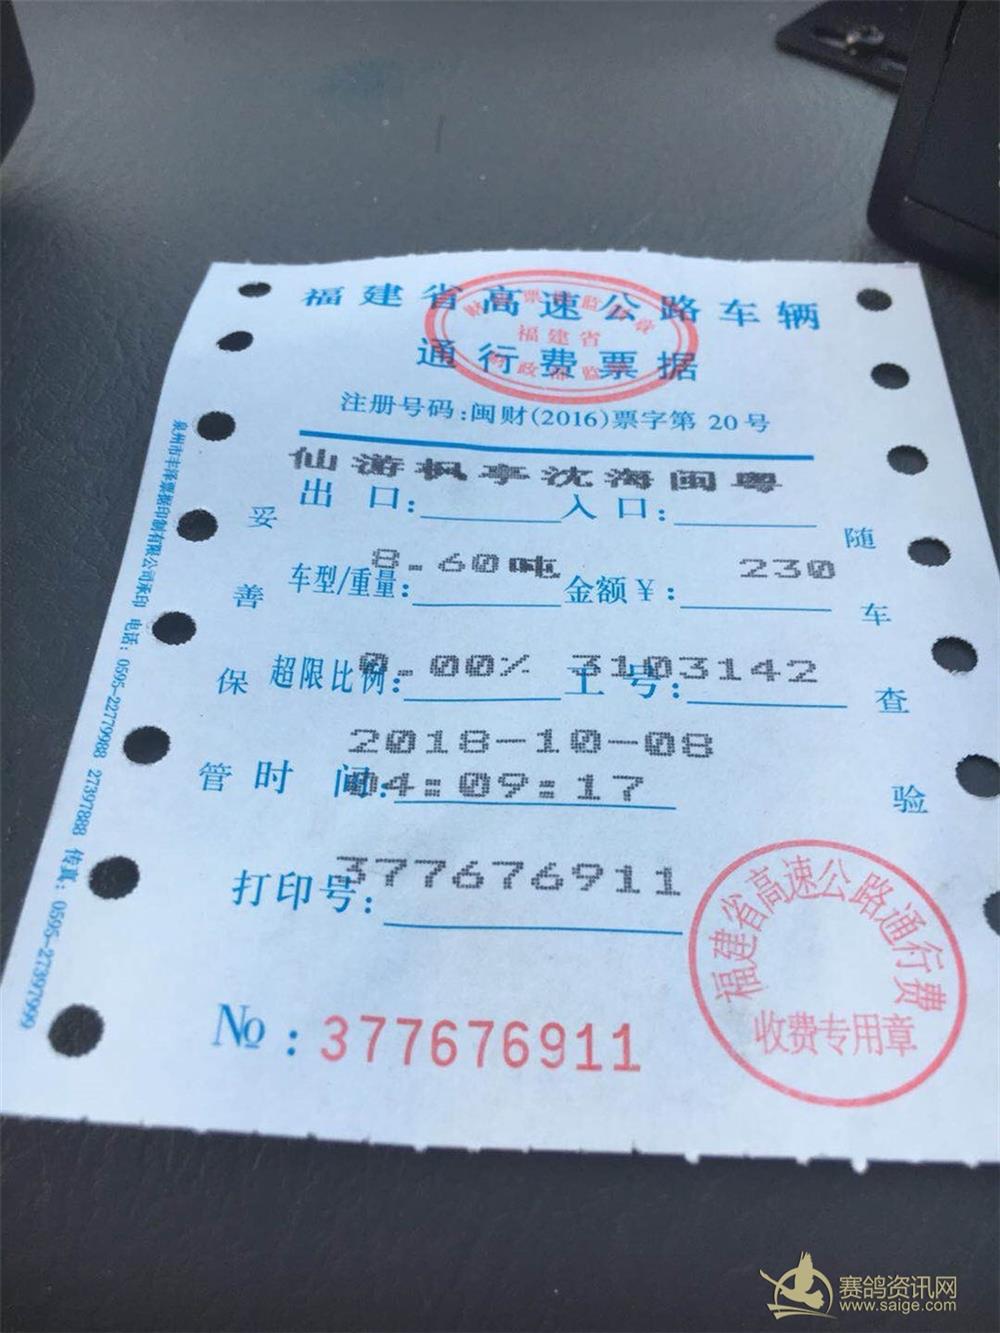 福建省高速公路车辆
通行费票据
福建省
注册号码:闽财(2016)票字第 20号
仙游枫亭沈海闽粤
出 口: 入 口:
8.60吨 230
车型/重量: 金额￥:
0.00% 3103142
超限比例: 工 号:
2018-10-08
时 间: 04:09:17
377676911
打印号:
№: 377676911
妥善保管
随车查验
福建省高速公路通行费
收费专用章
泉州市丰泽票据印制有限公司承印 电话: 0595-22779988 27397888 传真: 0595-27397999
赛鸽资讯网
www.saige.com